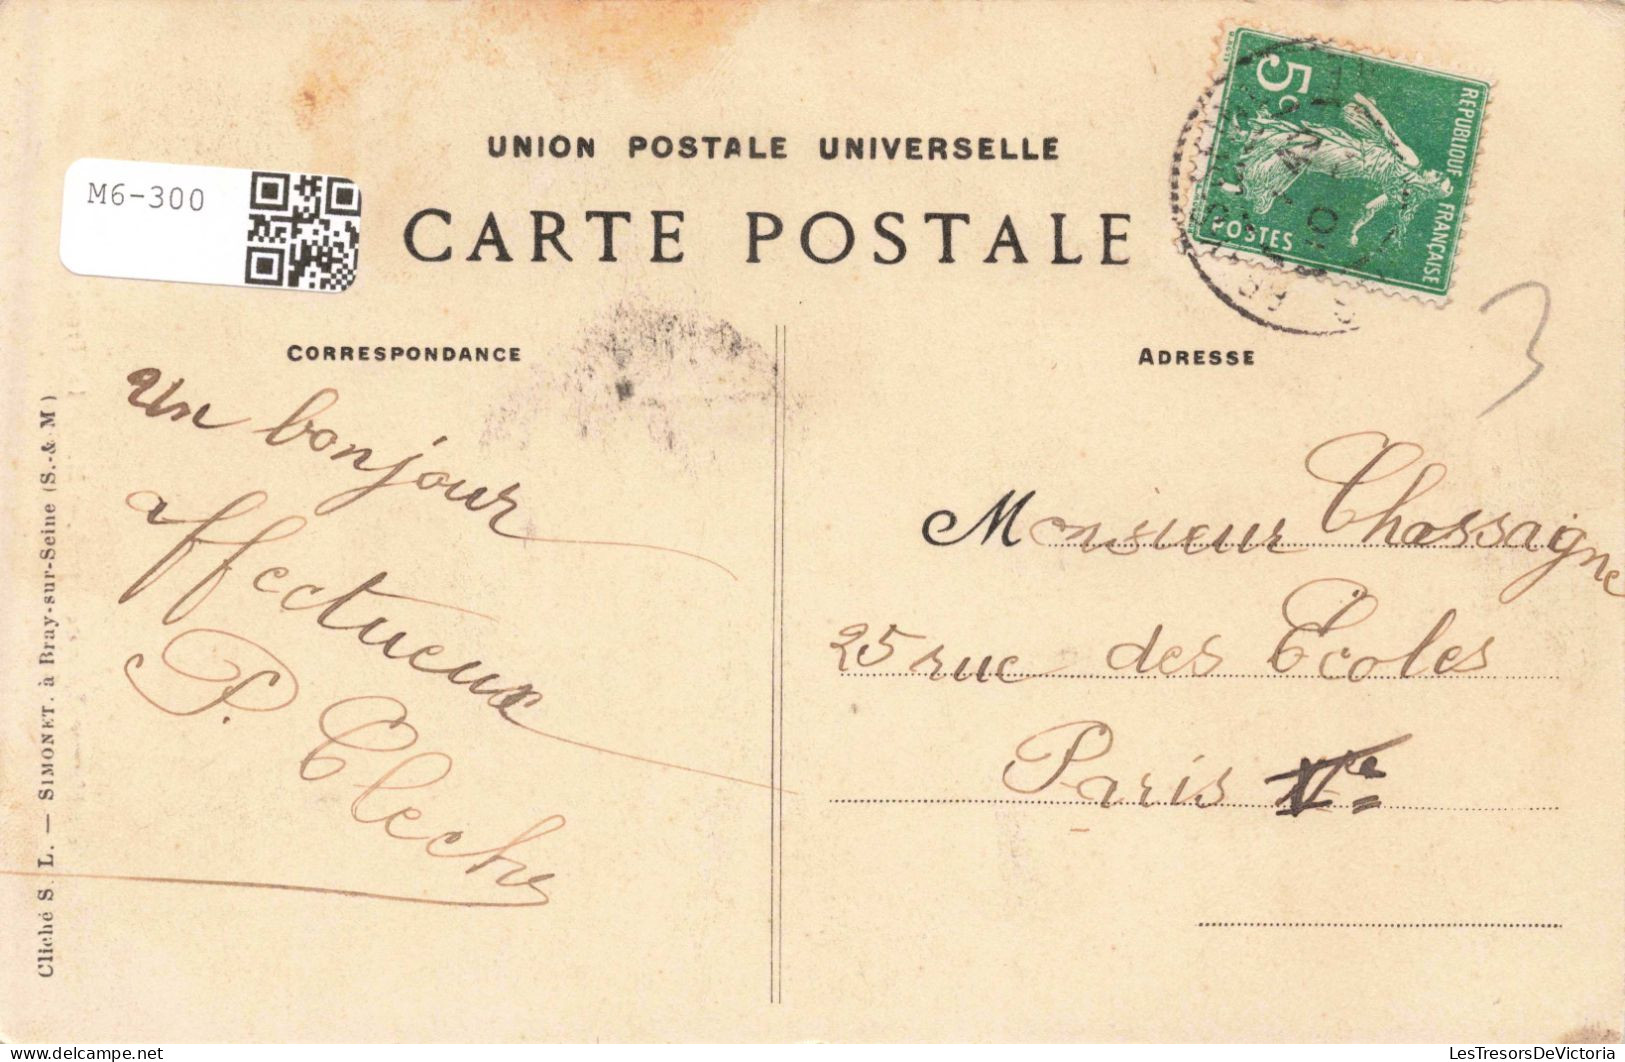 UNION POSTALE UNIVERSELLE
CARTE POSTALE
M6-300
5c
REPUBLIQUE FRANÇAISE
POSTES
CORRESPONDANCE
Un bonjour
affectueux
P. Clech
ADRESSE
Monsieur Chassaigne
25 rue des Ecoles
Paris Ve
3
Cliché S. L. — SIMONET, à Bray-sur-Seine (S.-& M)
LesTresorsDeVictoria